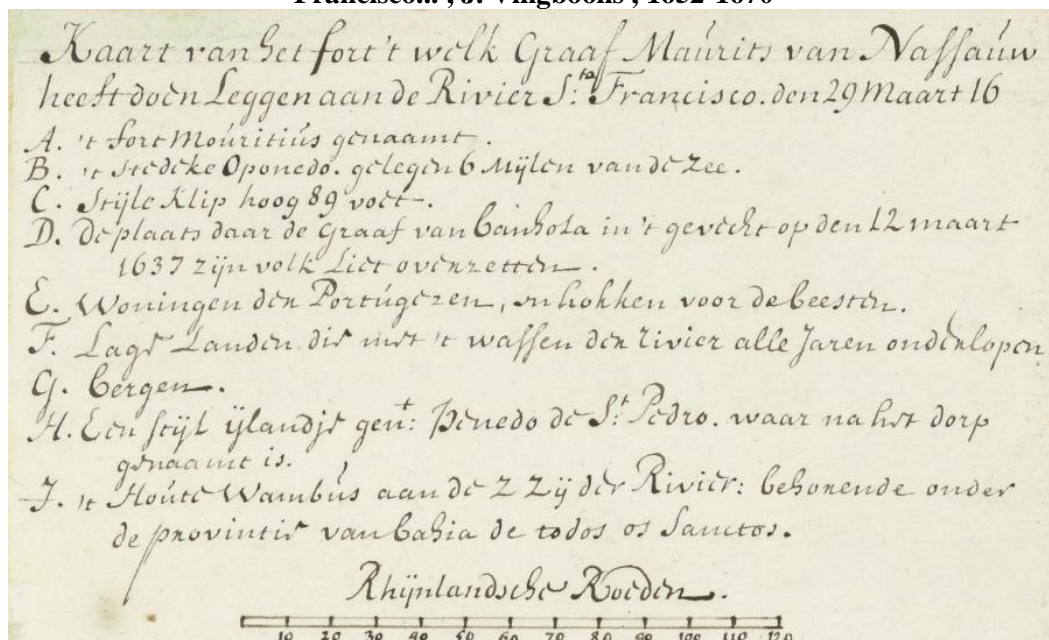 Francisco... , J. Vingboons , 1632-1670
Kaart van het fort 't welk Graaf Maurits van Nassauw
heeft doen Leggen aan de Rivier S:ta Francisco. den 29 Maart 16
A. 't fort Mouritius genaamt.
B. 't stedeke Oponedo. gelegen 6 Mijlen van de zee.
C. Stijle Klip hoog 89 voet.
D. de plaats daar de Graaf van Banhola in 't gevecht op den 12 maart
1637 zijn volk Liet overzetten.
E. Woningen der Portúgezen, en hokken voor de beesten.
F. Lage Landen die met 't wassen der rivier alle Jaren onderlopen
G. bergen.
H. Een stijl ijlandje gent: Penedo de St. Pedro. waar na het dorp
genaamt is.
J. 't Houte Wambús aan de Z Zij der Rivier: behorende onder
de provintie van Bahia de todos os Sanctos.
Rhijnlandsche Roeden.
10 20 30 40 50 60 70 80 90 100 110 120